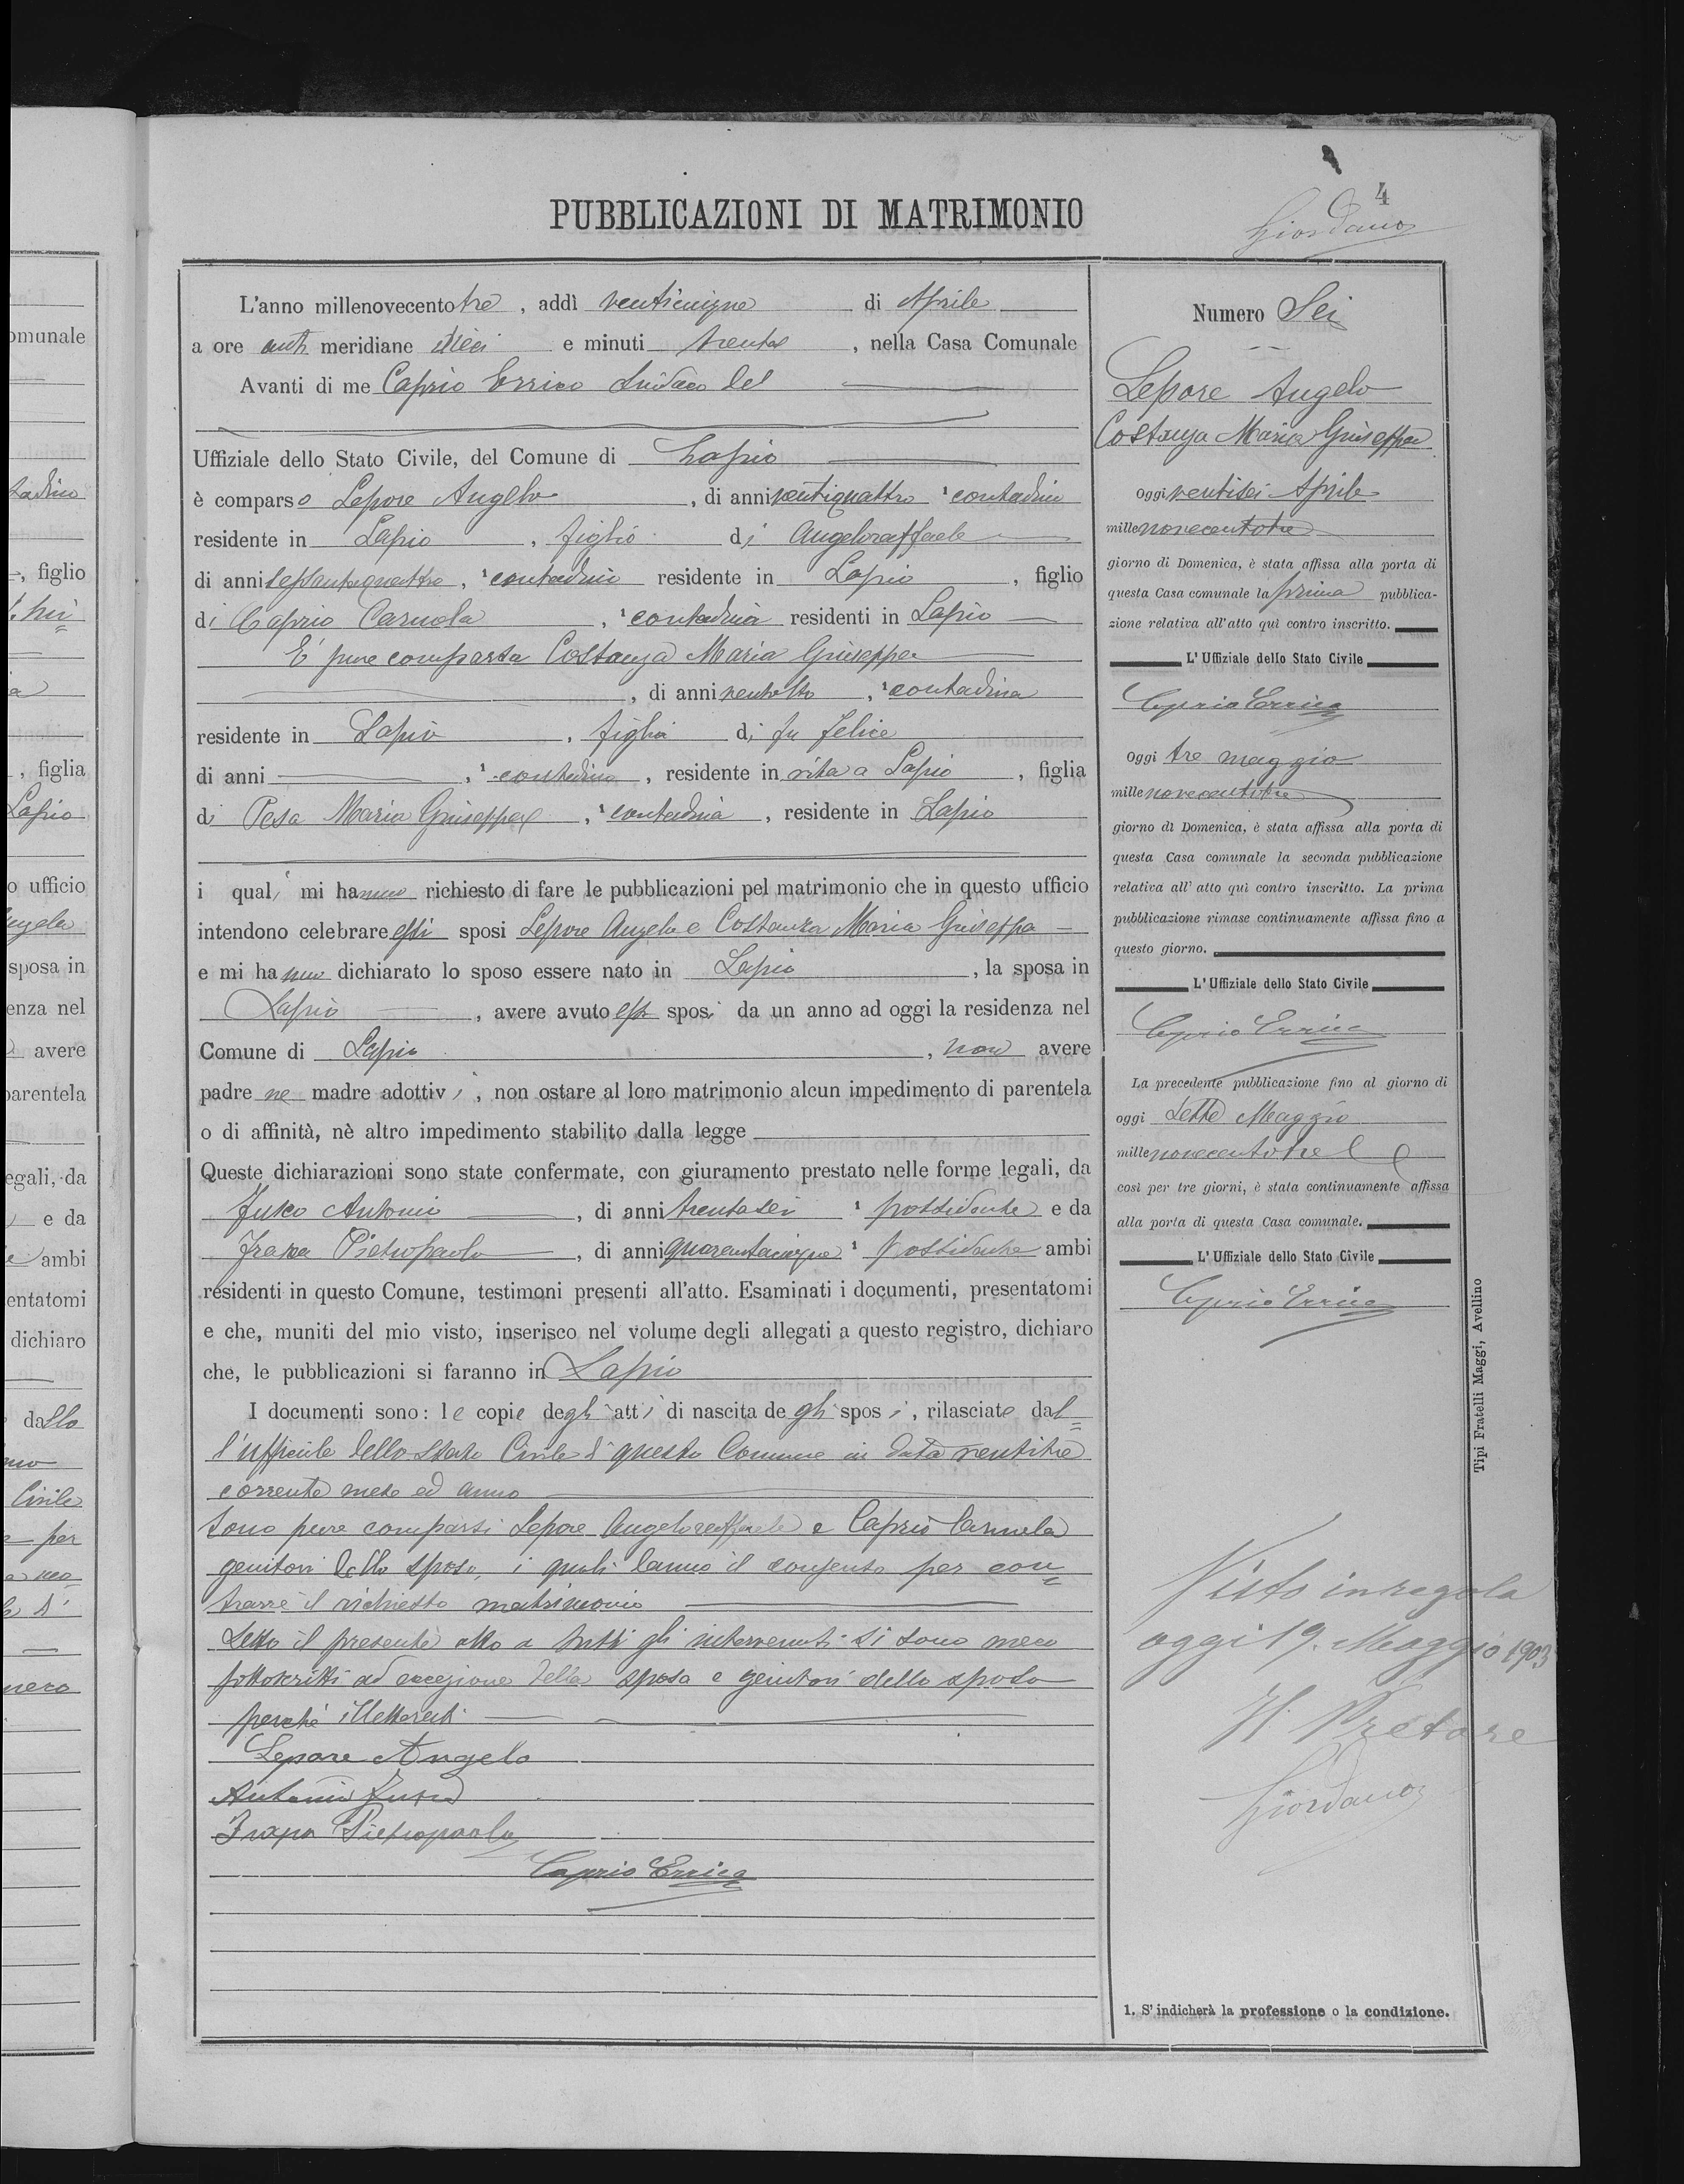 4
Giordano
PUBBLICAZIONI DI MATRIMONIO
L'anno millenovecentotre, addì venticinque di Aprile
a ore anti meridiane dieci e minuti trenta, nella Casa Comunale
Avanti di me Caprio Errico Sindaco del
Uffiziale dello Stato Civile, del Comune di Lapio
è comparso Lepore Angelo, di anni ventiquattro, ¹ contadino
residente in Lapio, figlio di Angeloraffaele
di anni sessantaquattro, ¹ contadino residente in Lapio, figlio
di Caprio Carmela, ¹ contadina residenti in Lapio
E' pure comparsa Costanza Maria Giuseppa
, di anni ventotto, ¹ contadina
residente in Lapio, figlia di fu Felice
di anni, ¹ contadino, residente in vita a Lapio, figlia
di Pesa Maria Giuseppa, ¹ contadina, residente in Lapio
i quali mi hanno richiesto di fare le pubblicazioni pel matrimonio che in questo ufficio
intendono celebrare essi sposi Lepore Angelo e Costanza Maria Giuseppa
e mi hanno dichiarato lo sposo essere nato in Lapio, la sposa in
Lapio, avere avuto essi sposi da un anno ad oggi la residenza nel
Comune di Lapio, non avere
padre ne madre adottivi, non ostare al loro matrimonio alcun impedimento di parentela
o di affinità, nè altro impedimento stabilito dalla legge
Queste dichiarazioni sono state confermate, con giuramento prestato nelle forme legali, da
Fusco Antonio, di anni trentasei ¹ possidente e da
Pietropaolo, di anni quarantacinque ¹ possidente ambi
residenti in questo Comune, testimoni presenti all'atto. Esaminati i documenti, presentatomi
e che, muniti del mio visto, inserisco nel volume degli allegati a questo registro, dichiaro
che, le pubblicazioni si faranno in Lapio
I documenti sono: le copie degli atti di nascita degli sposi, rilasciate dal=
l'ufficiale dello Stato Civile di questo Comune in data ventitre
corrente mese ed anno
Sono pure comparsi Lepore Angeloraffaele e Caprio Carmela
genitori dello sposo, i quali danno il consenso per con=
trarre il richiesto matrimonio
Letto il presente atto a tutti gli intervenuti si sono meco
sottoscritti ad eccezione della sposa e genitori dello sposo
perché illetterati
Lepore Angelo
Antonio Fusco
Pietropaolo
Caprio Errico
Numero Sei
Lepore Angelo
Costanza Maria Giuseppa
Oggi ventisei Aprile
millenovecentotre
giorno di Domenica, è stata affissa alla porta di
questa Casa comunale la prima pubblica-
zione relativa all'atto quì contro inscritto.
L'Uffiziale dello Stato Civile
Caprio Errico
Oggi tre maggio
millenovecentotre
giorno di Domenica, è stata affissa alla porta di
questa Casa comunale la seconda pubblicazione
relativa all' atto quì contro inscritto. La prima
pubblicazione rimase continuamente affissa fino a
questo giorno.
L'Uffiziale dello Stato Civile
Caprio Errico
La precedente pubblicazione fino al giorno di
oggi Sette Maggio
millenovecentotre
così per tre giorni, è stata continuamente affissa
alla porta di questa Casa comunale.
L'Uffiziale dello Stato Civile
Caprio Errico
Visto in regola
oggi 19. Maggio 1903
Il Pretore
Giordano
1. S'indicherà la professione o la condizione.
Tipi Fratelli Maggi, Avellino
omunale
tadino
, figlio
, figlia
Lapio
o ufficio
Angela
sposa in
enza nel
avere
parentela
egali, da
e da
ambi
entatomi
dichiaro
dallo
Civile
per